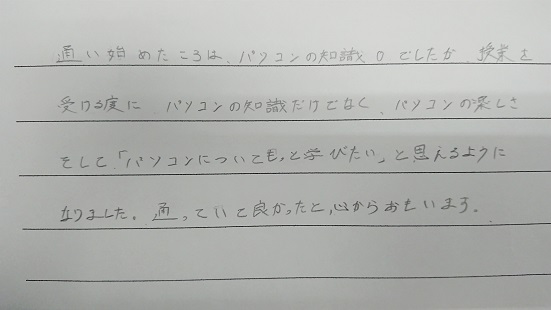 通い始めたころは、パソコンの知識0でしたが、授業を
受ける度に、パソコンの知識だけでなく、パソコンの楽しさ
そして「パソコンについてもっと学びたい」と思えるように
なりました。通っていて良かったと、心からおもいます。